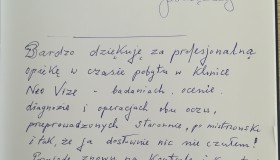 Bardzo dziękuję za profesjonalną
opiekę w czasie pobytu w klinice
Neo Vize - badaniach, ocenie,
diagnozie i operacjach obu oczu,
przeprowadzonych starannie, po mistrzowsku
i tak, że ja dosłownie nic nie czułem!
znowu na